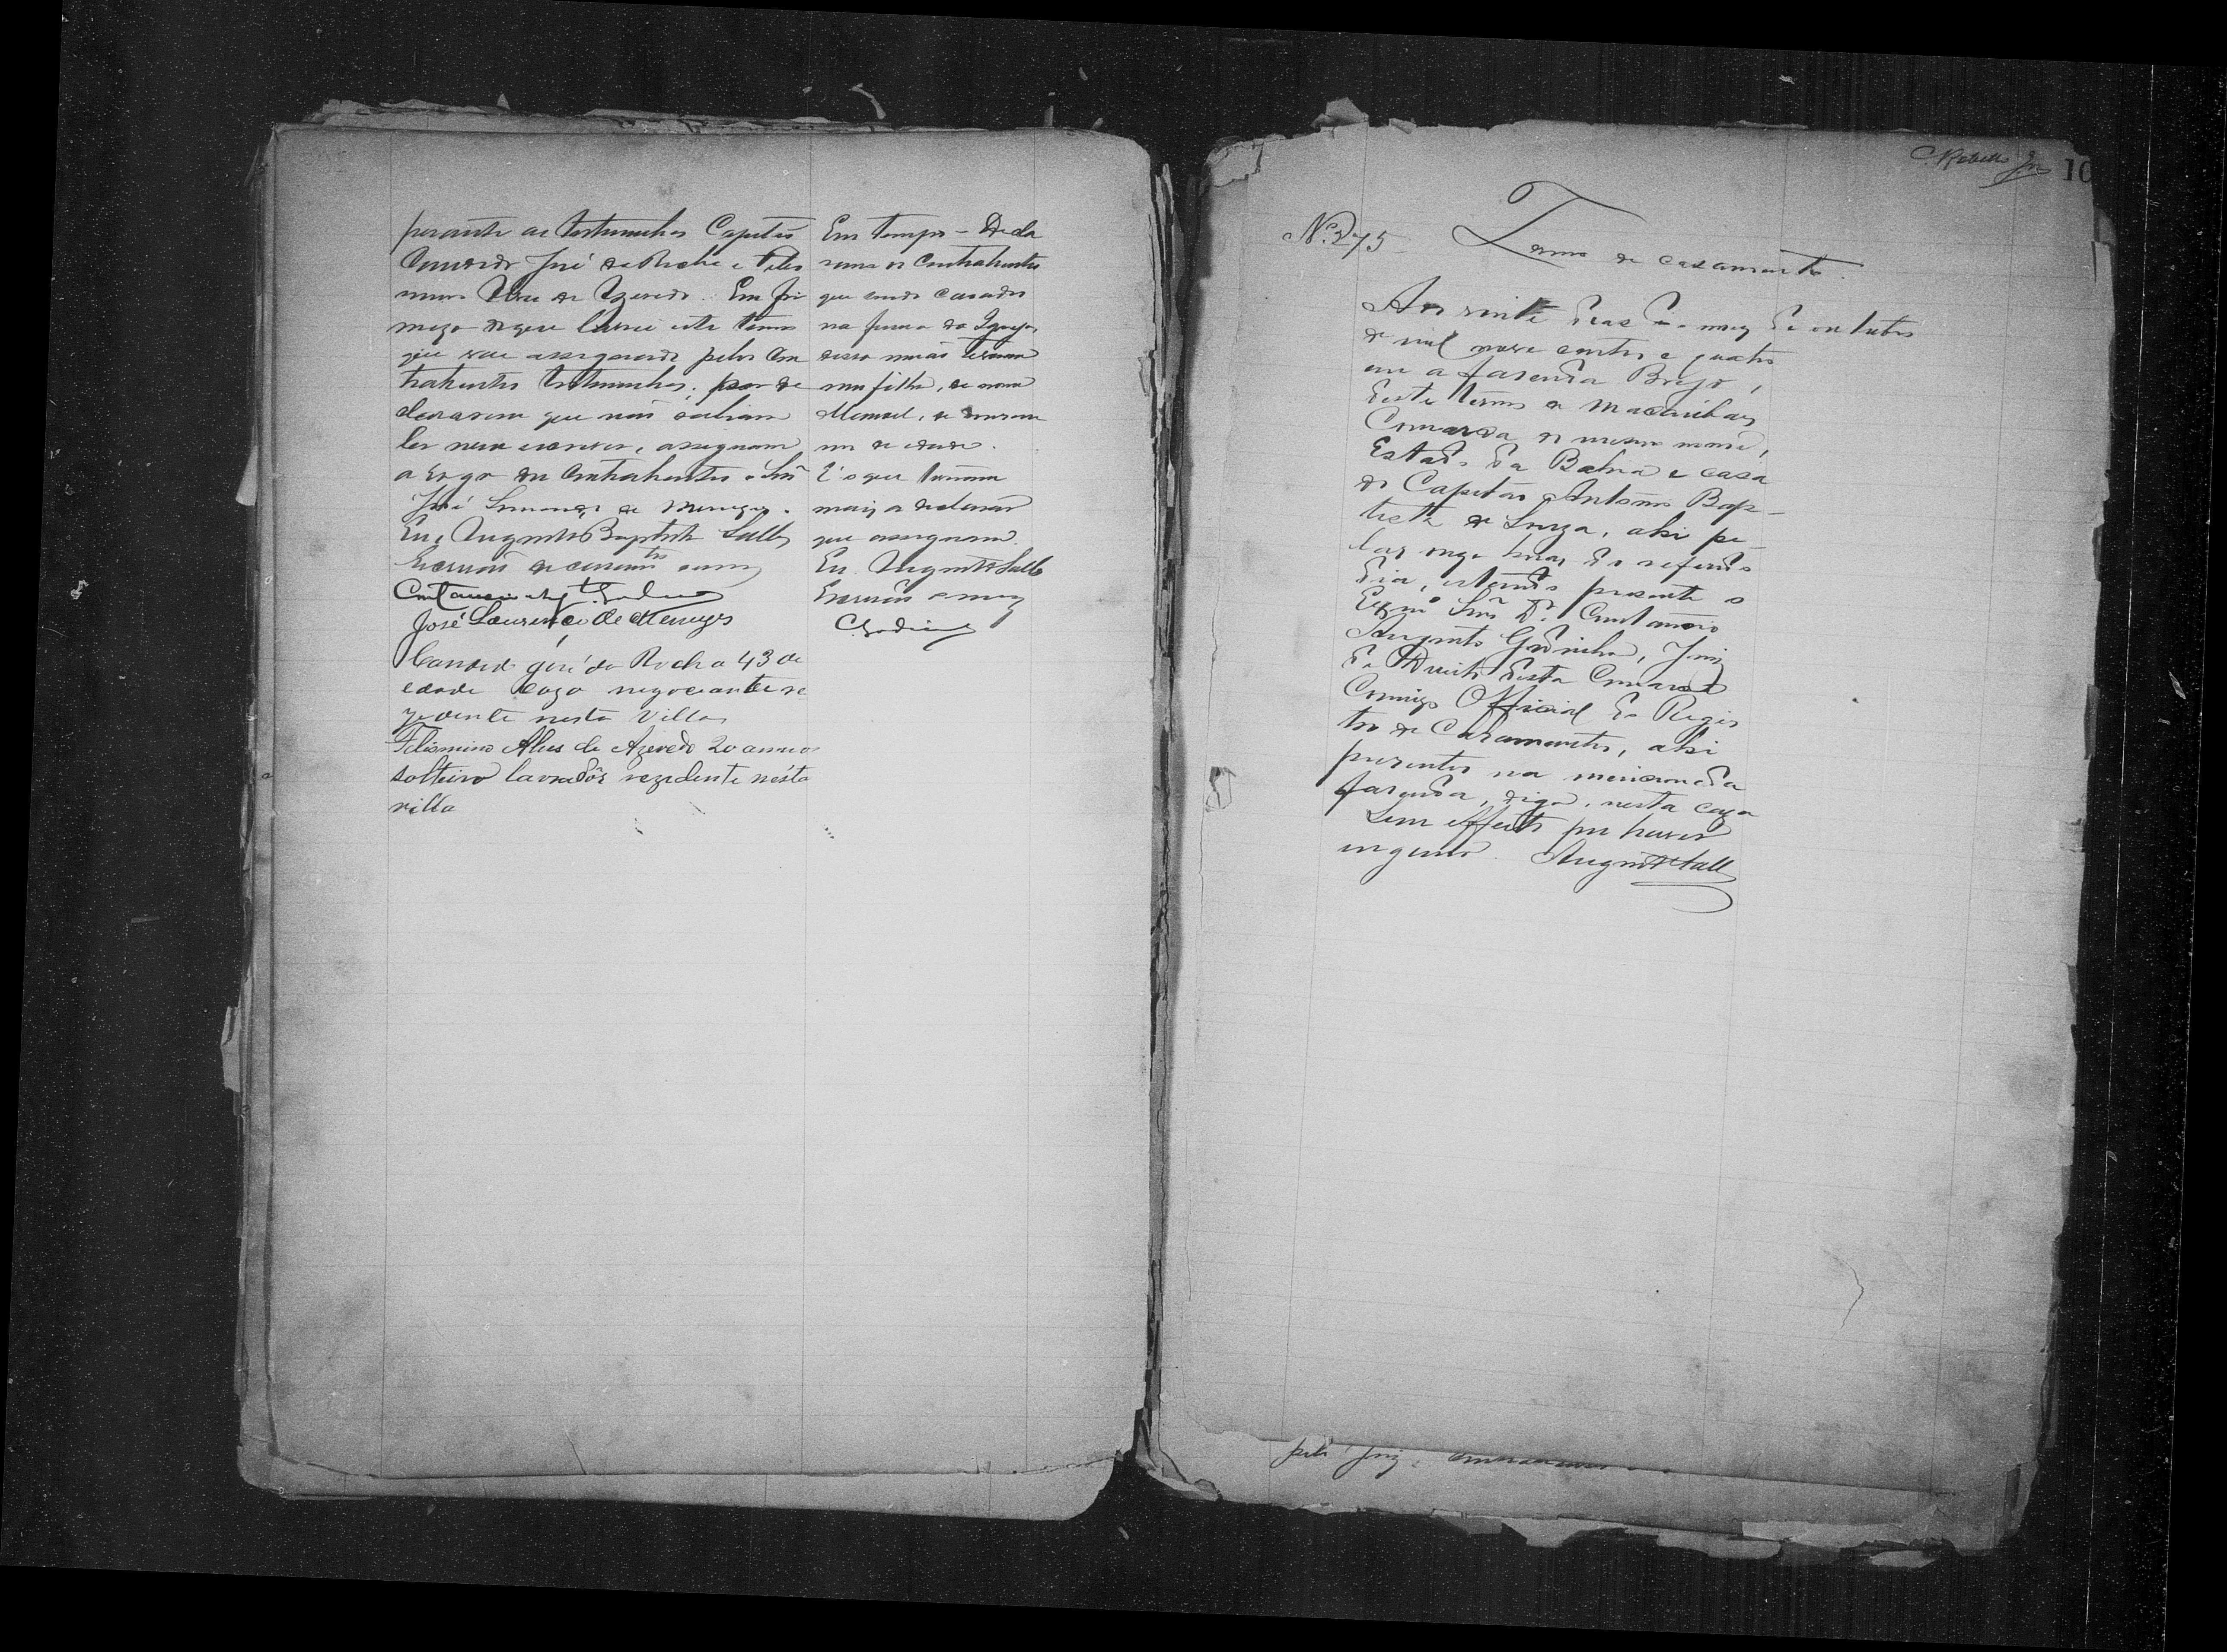 perante as testemunhas Capitão
José da Rocha e Felis
mino Alves de Azevedo. Em fir
meza do que lavrei este termo
que vae assignado pelos Con
trahentes testemunhas; por de
clararem que não sabiam
ler nem escrever, assignam
a rogo dos Contrahentes o Snr
José Lourenço de Menezes.
Eu, Augusto Baptista Salles
Escrivão de casamtos
José Lourenço de Menezes
Candido José da Rocha 43 de
edade cazo negociante re
zidente nesta Villa
Felismino Alves de Azevedo 20 annos
solteiro lavradôr rezidente nésta
villa
Em tempo - Decla
ramos os Contrahentes
que sendo casados
na forma da Igreja,
dessa união tiveram
um filho, de nome
Manoel, de
um de idade.
É o que tinham
mais a declarar
que assignam.
Eu Augusto Salles
Escrivão
C. Godinho
C. Rebello
10
N. 275
Termo de casamento.
Aos vinte dias do mez de outubro
de mil nove centos e quatro
em a fazenda Brejo,
deste termo de Macaúbas,
Comarca do mesmo nome,
Estado da Bahia e casa
do Capitão Antonio Bap-
tista de Souza, ahi pe
las onze horas do referido
dia, estando presente o
Exmo Snr Dr. Constancio
Augusto Godinho, Juiz
de Direito desta Comarca
Comigo Official do Regis
tro de Casamentos, ahi
presentes na mencionada
fazenda, digo, nesta caza
Sem effeito por haver
engano. Augusto Salles
pelo Juiz,